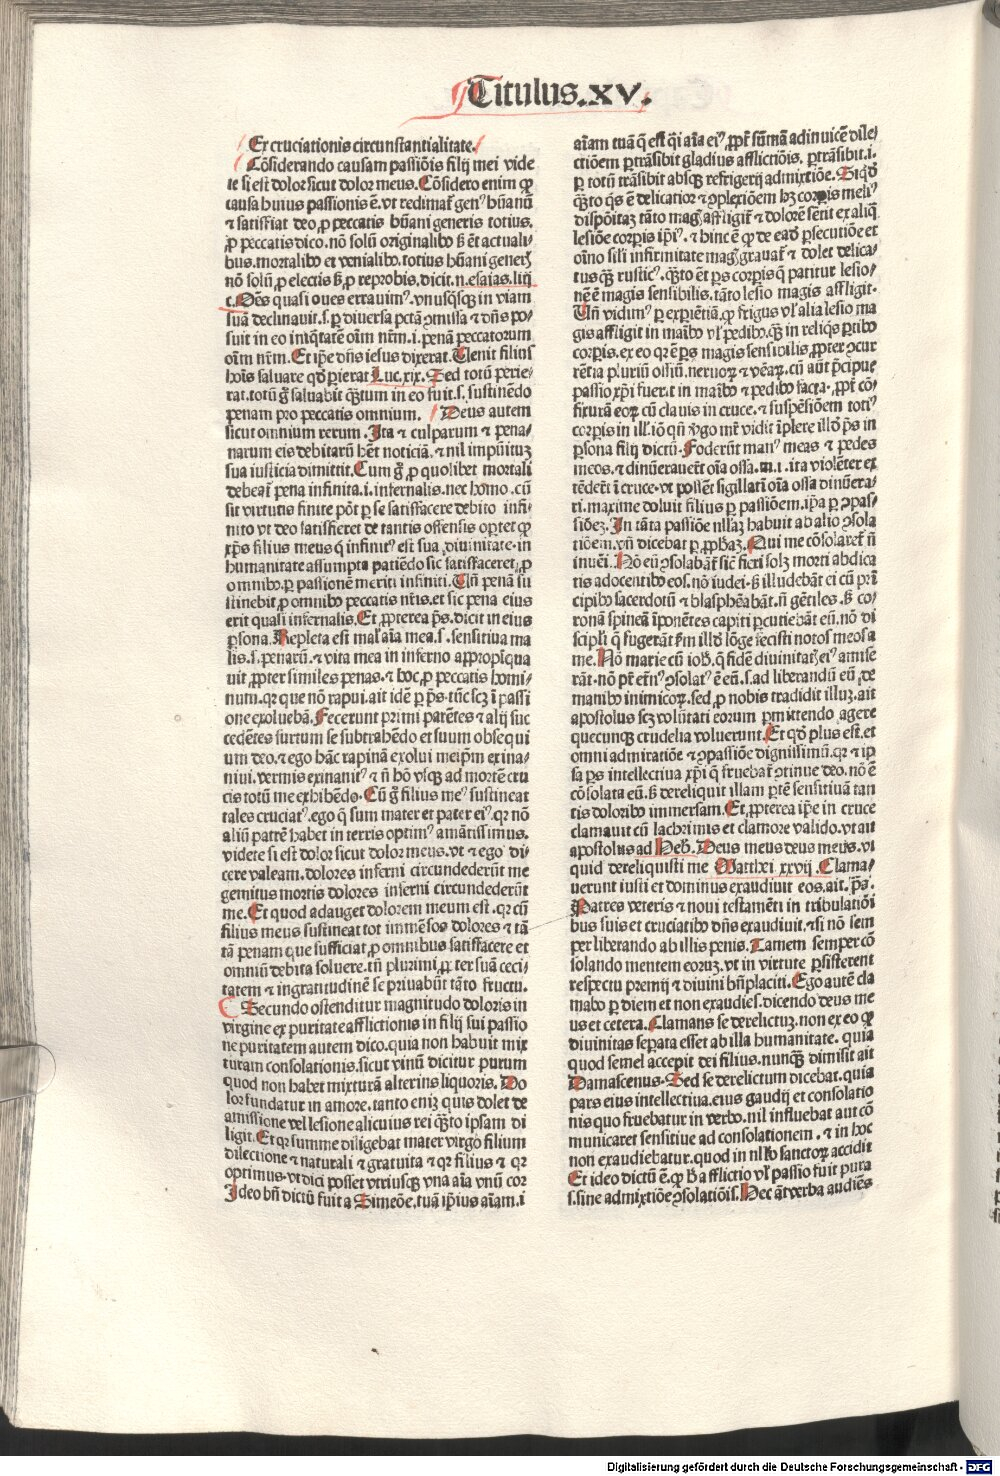 Titulus.xv.
Ex cruciationis circunstantialitate.
Cōsiderando causam passiōis filij mei vide
te si est dolor sicut dolor meus. Cōsidero enim ꝙ
causa huius passionis ē. vt redimat᷑ genꝰ hūanū
⁊ satisfiat deo, ꝓ peccatis hūani generis totius.
ꝓ peccatis dico. nō solū originalibꝰ s̄ et actuali-
bus. mortalibꝰ et venialibꝰ. totius hūani generꝭ
nō solū ꝓ electis s̄ ꝓ reprobis. dicit.n. esaias. liij
c. Oēs quasi oues errauimꝰ. vnusq̄sq̄ in viam
suā declinauit. s. ꝑ diuersa pctā ꝯmissa ⁊ dn̄s po-
suit in eo iniq̄tatē oīm nr̄m. i. penā peccatorum
oīm nr̄m. Et ip̄e dn̄s iesus dixerat. Venit filius
hoīs saluare qd̓ perierat Luc.xix. Sed totū perie-
rat. totū g̊ saluabit q̄ꝫtum in eo fuit. s. sustinēdo
penam pro peccatis omnium. Deus autem
sicut omnium rerum. Ita ⁊ culparum ⁊ pena-
narum eis debitarū hēt noticiā. ⁊ nil impūituꝫ
sua iusticia dimittit. Cum g̊ ꝓ quolibet mortali
debeat᷑ pena infinita. i. infernalis. nec homo. cū
sit virtutis finite pōt ꝑ se satisfacere debito infi-
nito vt deo satisfieret de tantis offensis oꝑtet ꝙ
xp̄s filius meus q̇ infinitꝰ est sua diuinitate. in
humanitate assumpta patiēdo sic satisfaceret, ꝓ
omnibꝰ. ꝑ passionē meriti infiniti. Vn̄ penā su
stinebit, ꝓ omnibꝰ peccatis nr̄is. et sic pena eius
erit quasi infernalis. Et ꝓpterea ps̄. dicit in eius
ꝑsona. Repleta est mal̓ aīa mea. s. sensitiua ma
lis. s. penarū. ⁊ vita mea in inferno appropīqua
uit, ꝓpter similes penas. ⁊ hoc, ꝓ peccatis homi-
num. qr que nō rapui. ait idē ꝑ ps̄. tūc scꝫ ī passi
one exoluebā. Fecerunt primi parētes ⁊ alij suc
cedētes furtum se subtrahēdo et suum obsequi
um deo. ⁊ ego hāc rapinā exolui meip̄m exina-
niui. vermis exinanitꝰ ⁊ n̄ hō vsq̄ ad mortē cru
cis totū me exhibēdo. Cū g̊ filius meꝰ sustineat
tales cruciatꝰ. ego q̄ sum mater et pater eiꝰ. qr nō
aliū patrē habet in terris optimꝰ amātissimus.
videte si est dolor sicut dolor meus. vt ⁊ ego di-
cere valeam. dolores inferni circundederūt me
gemitus mortis dolores inferni circundederūt
me. Et quod adauget dolorem meum est. qr cū
filius meus sustineat tot immēsos dolores ⁊ tā
tā penam que sufficiat, ꝓ omnibus satisfacere et
omniū debita soluere. tn̄ plurimi, ꝓpter suā ceci-
tatem ⁊ ingratitudinē se priuabūt tāto fructu.
Secundo ostenditur magnitudo doloris in
virgine ex puritate afflictionis in filij sui passio
ne puritatem autem dico. quia non habuit mix
turam consolationis. sicut vinū dicitur purum
quod non habet mixturā alterius liquoris. Do
lor fundatur in amore. tanto eniꝫ quis dolet de
amissione vel lesione alicuius rei q̄ꝫto ipsam di
ligit. Et qr summe diligebat mater virgo filium
dilectione ⁊ naturali ⁊ gratuita ⁊ qr filius ⁊ qr
optimus. vt dici posset vtriusq̄ vna aīa vnū cor
Ideo bn̄ dictū fuit a Simeōe. tuā ip̄ius aīam. i
aīam tuā q̄ est q̄i aīa eiꝰ, ꝓpt̓ sūmā adinuicē dile-
ctiōem ꝑtrāsibit gladius afflictiōis. ꝑtrāsibit. i.
ꝑ totū trāsibit absq̄ refrigerij admixtiōe. Si qd̓
q̄ꝫto q̇s ē delicatior ⁊ ꝯplexiōem hꝫ corpis meliꝰ
dispōitaꝫ tāto mag̓ affligit᷑ ⁊ dolorē sētit ex aliq̄
lesiōe corpis ip̄iꝰ. ⁊ hinc ē ꝙ de eadē ꝑsecutiōe et
oīno sili infirmitate mag̓ grauat᷑ ⁊ dolet delica-
tus q̄ꝫ rusticꝰ. q̄ꝫto ēt ps̄ corpis q̄ patitur lesio-
nē ē magis sensibilis. tāto lesio magis affligit.
Vn̄ vidimꝰ ꝑ experiētiā. ꝙ frigus vl̓ alia lesio ma
gis affligit in maībꝰ vl̓ pedibꝰ. q̄ꝫ in reliq̄s ꝑtibꝰ
corpis. ex eo qr ē ps̄ magis sensibilis, ꝓpter ꝯcur
rētia pluriū ossiū. neruoꝝ ⁊ venaꝝ. cū aūt p̄cipue
passio xp̄i fuerit in maībꝰ ⁊ pedibꝰ facta, ꝓpt̓ cō-
fixurā eoꝝ cū clauis in cruce. ⁊ suspēsiōem totiꝰ
corpis in ill̓. iō qn̄ v̓go mr̄ vidit īplere illd̓ ps̄ in
ꝑsona filij dictū. Foderūt manꝰ meas ⁊ pedes
meos. ⁊ dinūerauert̄ oīa ossa. m. i. ita violēter ex
tēdert̄ ī cruce. vt possēt sigillatī oīa ossa dinūera-
ri. maxime doluit filius ꝑ passiōem. ip̄a ꝑ ꝯpas-
siōeꝫ. In tāta passiōe nllaꝫ habuit ab alio ꝯsola
tiōem. vn̄ dicebat ꝑ ꝓph̄aꝫ. Qui me cōsolaret᷑ n̄
inuēi. Nō eū ꝯsolabāt᷑ sic fieri solꝫ morti abdica
tis adocentibꝰ eos. nō iudei. s̄ illudebāt ei cū pri
cipibꝰ sacerdotū ⁊ blasphēabāt. n̄ gētiles. s̄ co-
ronā spineā īponētes capiti ꝑcutiebāt eū. nō di
scipli q̇ fugerāt s̄m illd̓ lōge fecisti notos meos a
me. Nō marie cū ioh̄. q̄ fidē diuinitatꝭ eiꝰ amise
rāt. nō pr̄ et̓nꝰ ꝯsolatꝰ ē eū. s. ad liberandū eū de
manibꝰ inimicoꝝ. sed, ꝓ nobis tradidit illuꝫ. ait
apostolus scꝫ volūtati eorum ꝑmittendo agere
quecunq̄ crudelia voluerunt. Et qd̓ plus est. et
omni admiratiōe ⁊ ꝯpassiōe dignissimū. qr ⁊ ip
sa ps̄ intellectiua xp̄i q̄ fruebat᷑ ꝯtinue deo. nō ē
cōsolata eū. s̄ dereliquit illam ꝑtē sensitiuā tan
tis doloribꝰ immersam. Et, ꝓpterea ip̄e in cruce
clamauit cū lachrimis et clamore valido. vt ait
apostolus ad Heb̄. Deus meus deus meus. vt
quid dereliquisti me Matthei xxvij. Clama-
uerunt iusti et dominus exaudiuit eos. ait. ps̄.
Patres veteris ⁊ noui testamēti in tribulatiōi
bus suis et cruciatibꝰ dn̄s exaudiuit. ⁊ si nō sem
per liberando ab illis penis. Tamem semper cō
solando mentem eoruꝫ. vt in virtute ꝑsisterent
respectu premij ⁊ diuini bn̄placiti. Ego autē cla
mabo ꝑ diem et non exaudies. dicendo deus me
us et cetera. Clamans se derelictuꝫ. non ex eo ꝙ
diuinitas seꝑata esset ab illa humanitate. quia
quod semel accepit dei filius. nunq̄ꝫ dimisit ait
Damascenus. Sed se derelictum dicebat. quia
pars eius intellectiua. eius gaudij et consolatio
nis quo fruebatur in verbo. nil influebat aut cō
municaret sensitiue ad consolationem. ⁊ in hoc
non exaudiebatur. quod in nllo sanctoꝝ accidit
Et ideo dictū ē. ꝙ h̄ afflictio vl̓ passio fuit pura
s. sine admixtiōe ꝯsolatiōis. Hec aūt verba audiēs
Digitalisierung gefördert durch die Deutsche Forschungsgemeinschaft - DFG